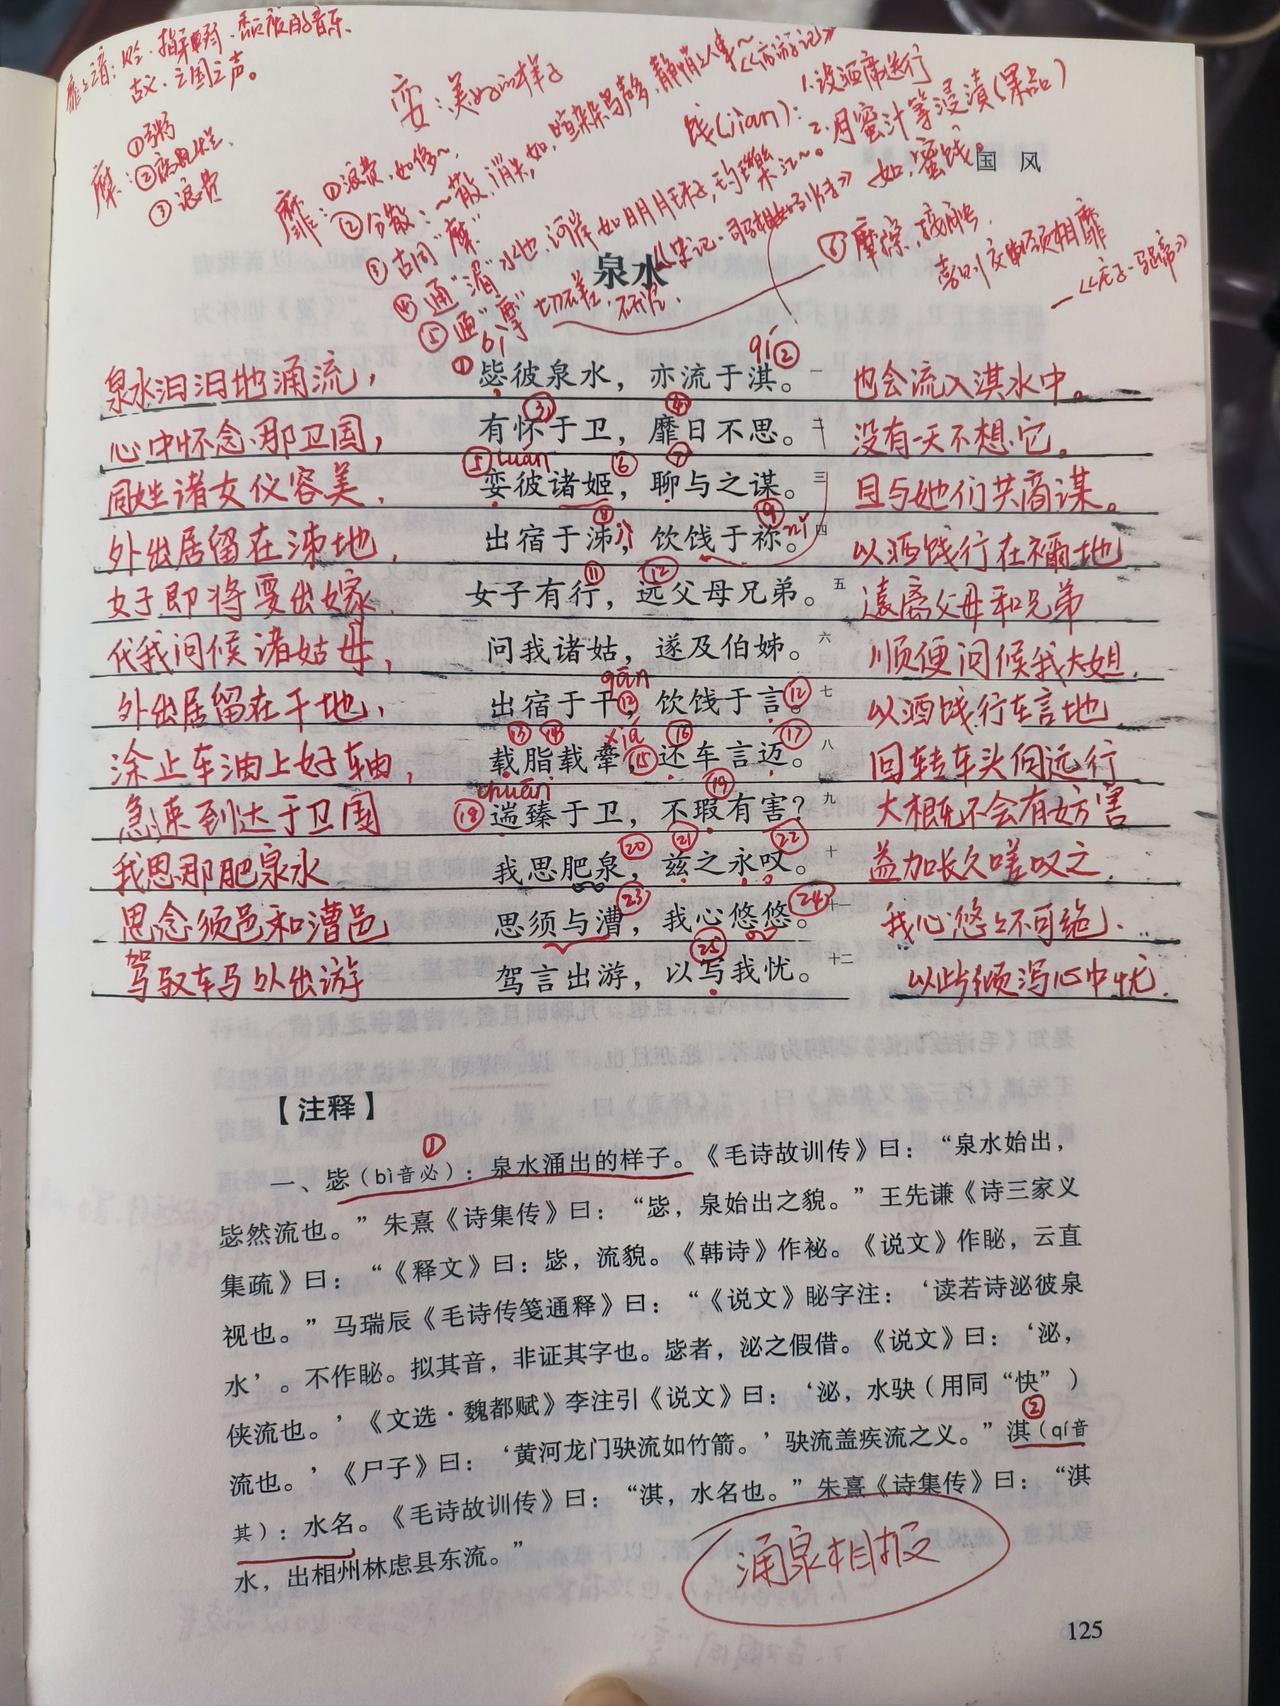 靡靡之音：贬，指柔弱、萎靡的音乐
古义，亡国之声。
娈：美好的样子
饯(jiàn)：1.设酒席送行
2.用蜜汁等浸渍(果品)
如，蜜饯。
糜：①粥
②腐烂
③浪费
靡：①浪费，如侈~
②分散：~散，消失，如，喧杂
静悄
③古同"糜"
④通"湄"水边，河岸 如明月珠子，玓瓅江~。《史记·司马相如列传》
⑤通"摩"切磋，研究
⑥摩擦，接触
喜则交颈相靡
—《庄子·马蹄》
国 风
泉水
bì
qí②
泉水汩汩地涌流，
①毖彼泉水，亦流于淇。一
也会流入淇水中。
心中怀念那卫国，
有怀③于卫，靡④日不思。二
没有一天不想它。
同姓诸女仪容美，
⑤luán娈彼诸姬⑥，聊⑦与之谋。三
且与她们共商谋。
外出居留在泲地，
出宿于泲⑧，饮饯于祢⑨。四
以酒饯行在禰地
女子即将要出嫁，
女子有行⑪，远⑫父母兄弟。五
遠离父母和兄弟
代我问候诸姑母，
问我诸姑，遂及伯姊。六
顺便问候我大姐.
外出居留在干地，
出宿于干gān，饮饯于言⑫。七
以酒饯行在言地
涂上车油上好车轴，
载⑬脂⑭载舝xiá⑮，还⑯车言迈⑰。八
回转车头向远行
急速到达于卫国
⑱chuán遄臻于卫，不瑕⑲有害？九
大概不会有妨害
我思那肥泉水
我思肥泉⑳，兹㉑之永叹㉒。十
益加长久嗟叹之.
思念须邑和漕邑
思须与漕㉓，我心悠悠㉔。十一
我心悠悠不可绝.
驾驭车马外出游
驾言出游，以写㉕我忧。十二
以此倾泻心中忧.
【注释】
①
一、毖（bì音必）：泉水涌出的样子。《毛诗故训传》曰：“泉水始出，
毖然流也。”朱熹《诗集传》曰：“毖，泉始出之貌。”王先谦《诗三家义
集疏》曰：“《释文》曰：毖，流貌。《韩诗》作祕。《说文》作䀣，云直
视也。”马瑞辰《毛诗传笺通释》曰：“《说文》䀣字注：‘读若诗泌彼泉
水’。不作䀣。拟其音，非证其字也。毖者，泌之假借。《说文》曰：‘泌，
侠流也。’《文选·魏都赋》李注引《说文》曰：‘泌，水驶（用同“快”）
流也。’《尸子》曰：‘黄河龙门驶流如竹箭。’驶流盖疾流之义。”淇（qí音
②
其）：水名。《毛诗故训传》曰：“淇，水名也。”朱熹《诗集传》曰：“淇
水，出相州林虑县东流。”
涌泉相报
125